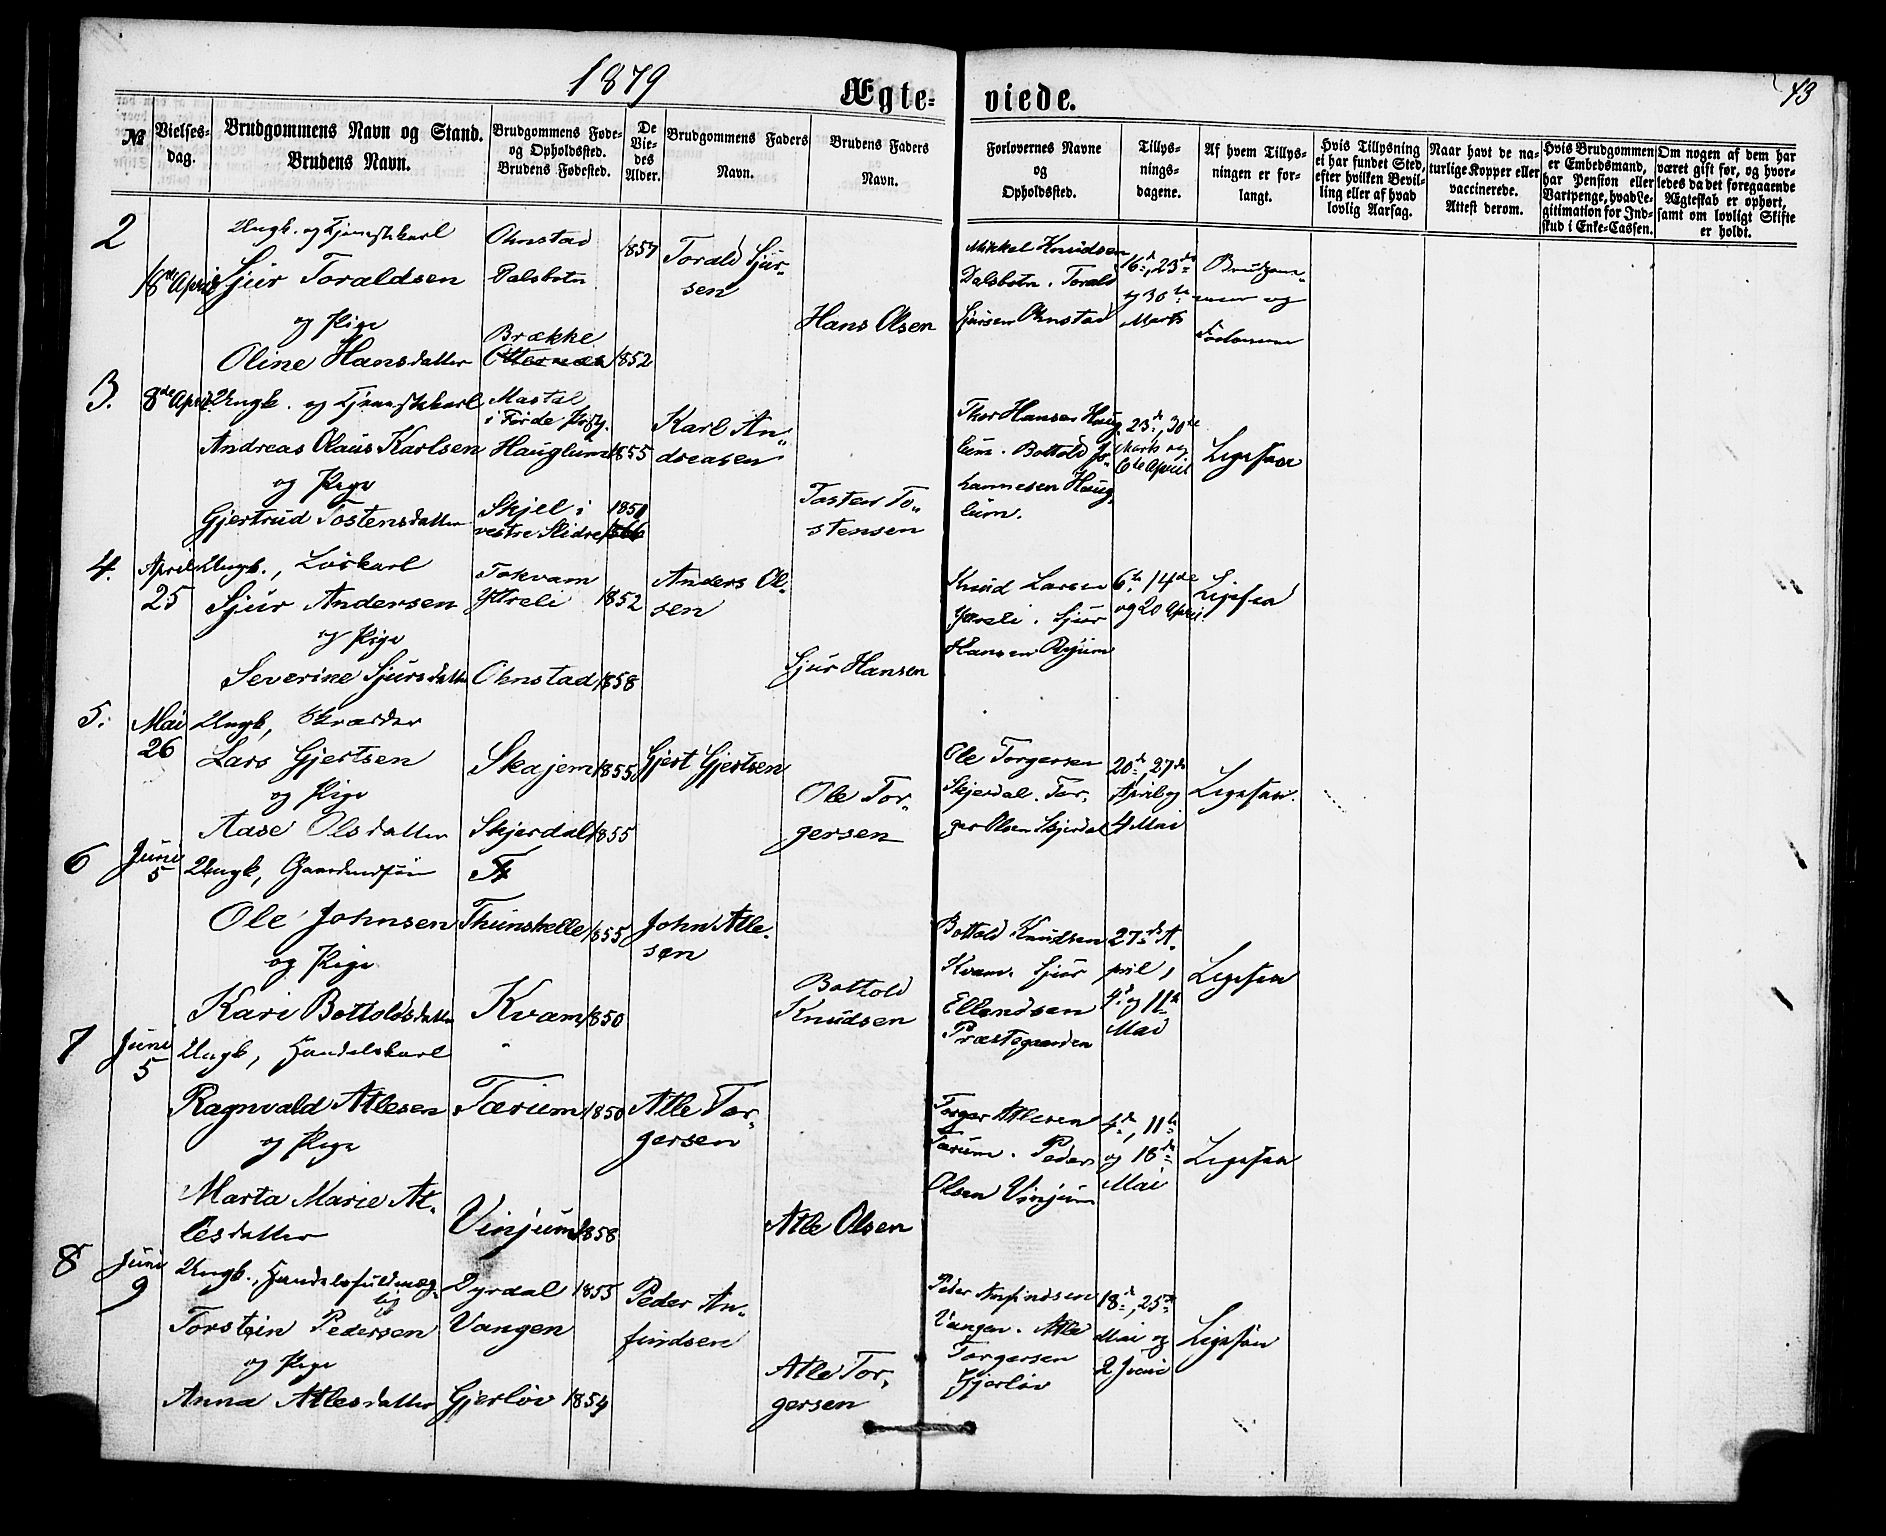 1879
Ægte-viede.
43
№
Vielses-
dag.
Brudgommens Navn og Stand.
Brudens Navn.
Brudgommens Føde-
og Opholdssted.
Brudens Fødested.
De
Vie-
des
Alder.
Brudgommens Faders
Navn.
Brudens Faders
Navn.
Forlovernes Navne
og
Opholdssted.
Tillys-
nings-
dagene.
Af hvem Tillys-
ningen er for-
langt.
Hvis Tillysning
ei har fundet Sted,
efter hvilken Bevil-
ling eller af hvad
lovlig Aarsag.
Naar havt de na-
turlige Kopper eller
vaccinerede.
Attest derom.
Hvis Brudgommen
er Embedsmand,
har Pension eller
Vartpenge, hvad Le-
gitimation for Ind-
skud i Enke-Cassen.
Om nogen af dem har
været gift før, og hvor-
ledes da det foregaaende
Ægteskab er ophørt,
samt om lovligt Skifte
er holdt.
2
8de April
Ungk. og Tjenestekarl
Sjur Toraldsen
og Pige
Oline Hansdatter
Ohnstad
Dalsbotn
Brække
Otternæs
1857
1852
Torald Sjur-
sen
Hans Olsen
Mikkel Knudsen
Dalsbotn. Torald
Sjursen Ohnstad
16de, 23de
og 30te
Marts
Brudgom-
men og
Forloverne
3.
8de April
Ungk. og Tjenestekarl
Andreas Olaus Karlsen
og Pige
Gjertrud Tostensdatter
Mastal
i Førde Prstg.
Hauglum
Skjel i
vestre Slidre
1855
1851
Karl An-
dreasen
Tosten To-
stensen
Thor Hansen Haug-
lum. Bottold Jo-
hannesen Haug-
lum.
23de, 30te
Marts og
6te April
Ligesaa
4.
April
25
Ungk., Løskarl
Sjur Andersen
og Pige
Severine Sjursdatter
Tokvam
Ytreli
Ohnstad
1852
1858
Anders Ol-
sen
Sjur Hansen
Knud Larsen
Ytreli. Sjur
Hansen Ryum
6te, 14de
og 20 April
Ligesaa
5.
Mai
26
Ungk, Skrædder
Lars Gjertsen
og Pige
Aase Olsdatter
Skajem
Skjerdal
1855
1855
Gjert Gjertsen
Ole Tor-
gersen
Ole Torgersen
Skjerdal. Tor-
ger Olsen Skjerdal
20de, 27de
April og
4 Mai
Ligesaa.
6
Juni
5
Ungk, Gaardmandssøn
Ole Johnsen
og Pige
Kari Bottoldsdatter
Thunshelle
Kvam
1855
1850
John Atle-
sen
Bottold
Knudsen
Bottold Knudsen
Kvam. Sjur
Ellendsen
Præstegaarden
27de A-
pril,
4de og 11te
Mai
Ligesaa
7
Juni
5
Ungk, Handelskarl
Ragnvald Atlesen
og Pige
Marta Marie At-
lesdatter
Tærum
Vinjum
1850
1858
Atle Tor-
gersen
Atle Olsen
Torger Atlesen
Tærum. Peder
Olsen Vinjum
4de, 11te
og 18de
Mai
Ligesaa
8
Juni
9
Ungk., Handelsfuldmæg-
tig
Torstein Pedersen
og Pige
Anna Atlesdatter
Dyrdal
Vangen
Gjerløv
1855
1854
Peder An-
findsen
Atle Tor-
gersen
Peder Anfindsen
Vangen. Atle
Torgersen
Gjerløv
18de, 25de
Mai og
2 Juni
Ligesaa